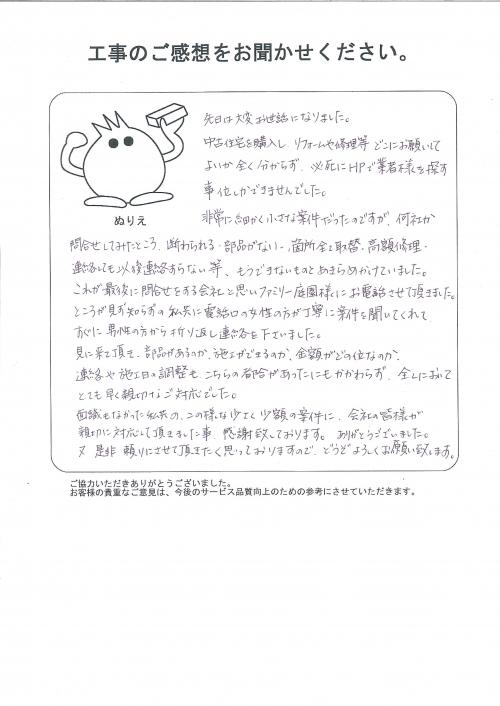 工事のご感想をお聞かせください。
先日は大変お世話になりました。
中古住宅を購入し、リフォームや修理等 どこにお願いして
よいか全く分からず、必死にHPで業者様を探す
事位しかできませんでした。
ぬりえ
非常に細かく小さな案件だったのですが、何社か
問合せしてみたところ、断わられる・部品がない・箇所全と取替・高額修理・
連絡しても以後連絡すらない等、もうできないものとあきらめかけていました。
これが最後に問合せをする会社と思いファミリー庭園様にお電話させて頂きました。
ところが見ず知らずの私共に電話口の女性の方が丁寧に案件を聞いてくれて
すぐに男性の方から折り返し連絡を下さいました。
見に来て頂き、部品があるのか、施工ができるのか、金額がどの位なのか、
連絡や施工日の調整も、こちらの都合があったにもかかわらず、全てにおいて
とても早く親切なご対応でした。
面識もなかった私共の、この様な少さく少額の案件に、会社の皆様が
親切に対応して頂きました事、感謝致しております。ありがとうございました。
又 是非 頼りにさせて頂きたく思っておりますので、どうぞよろしくお願い致します。
ご協力いただきありがとうございました。
お客様の貴重なご意見は、今後のサービス品質向上のための参考にさせていただきます。